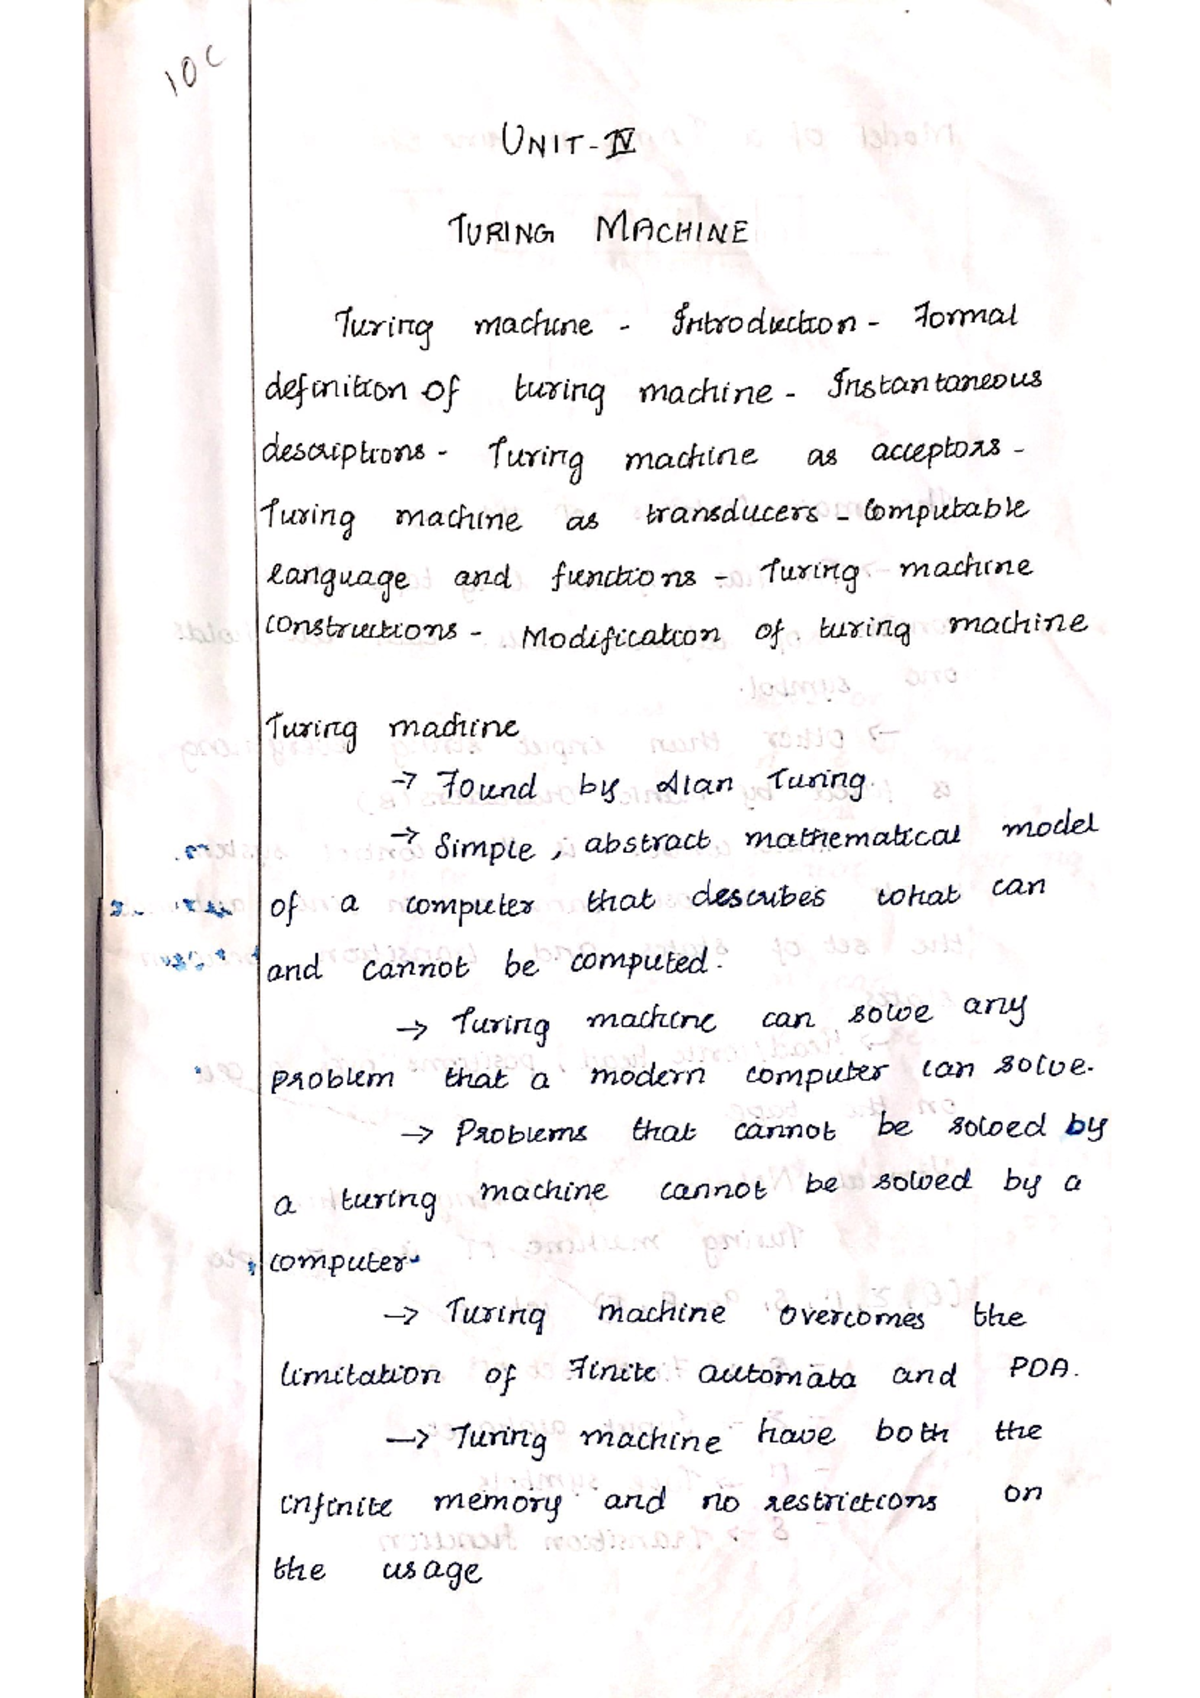 10C
UNIT-IV
TURING MACHINE
Turing machine - Introduction - Formal
definition of turing machine - Instantaneous
descriptions - Turing machine as acceptors -
Turing machine as transducers - Computable
language and functions - Turing machine
constructions - Modification of turing machine
Turing machine
→ Found by Alan Turing.
→ Simple, abstract mathematical model
of a computer that describes what can
and cannot be computed.
→ Turing machine can solve any
problem that a modern computer can solve.
→ Problems that cannot be solved by
a turing machine cannot be solved by a
computer.
→ Turing machine overcomes the
limitation of Finite automata and PDA.
→ Turing machine have both the
infinite memory and no restrictions on
the usage